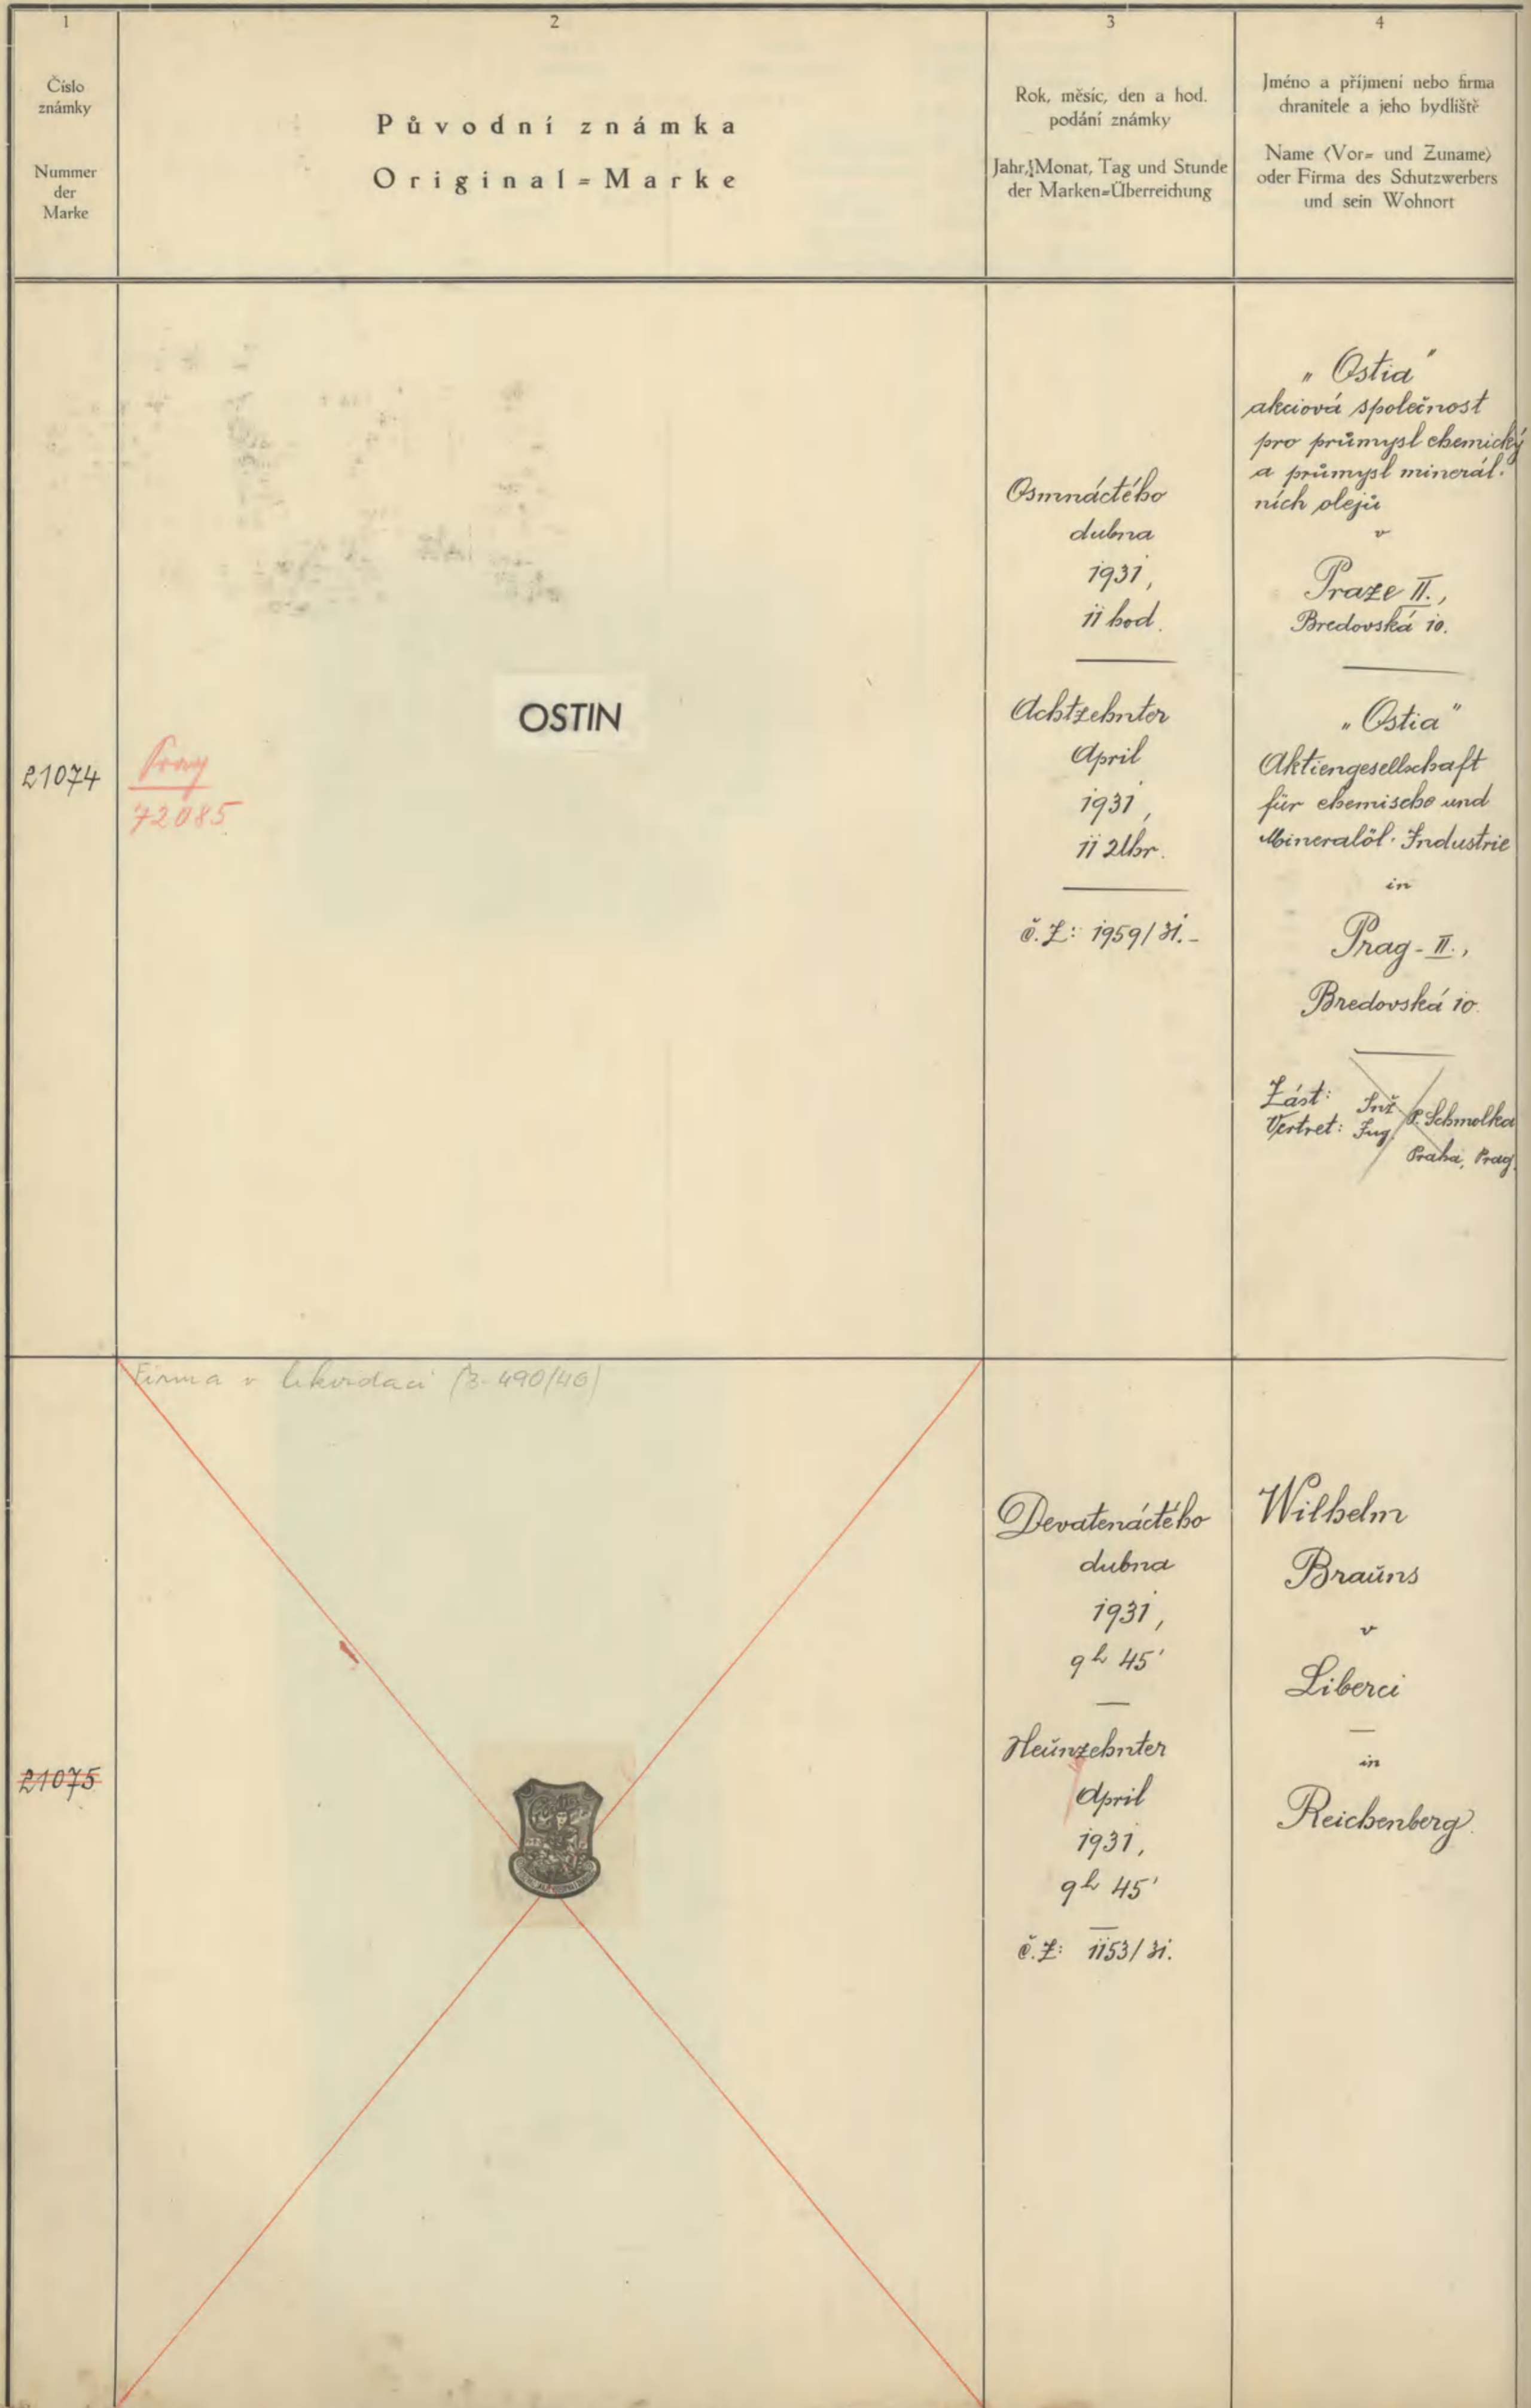 1
2
3
4
Číslo
známky
Nummer
der
Marke
Původní známka
Original=Marke
Rok, měsíc, den a hod.
podání známky
Jahr, Monat, Tag und Stunde
der Marken=Überreichung
Jméno a příjmení nebo firma
chranitele a jeho bydliště
Name (Vor= und Zuname)
oder Firma des Schutzwerbers
und sein Wohnort
21074
Prag
72085
OSTIN
Osmnáctého
dubna
1931,
11 hod.
Achtzehnter
April
1931,
11 Uhr.
č. Z: 1959/31.-
„Ostia"
akciová společnost
pro průmysl chemický
a průmysl minerál-
ních olejů
v
Praze II.,
Bredovská 10.
„Ostia"
Aktiengesellschaft
für chemische und
Mineralöl-Industrie
in
Prag-II.,
Bredovská 10.
Zást: Inž. P. Schmolka
Vertret: Ing.
Praha, Prag.
Firma v likvidaci (3-490/46)
21075
Devatenáctého
dubna
1931,
9h 45'
Neunzehnter
April
1931,
9h 45'
č. Z: 1153/31.
Wilhelm
Brauns
v
Liberci
in
Reichenberg.